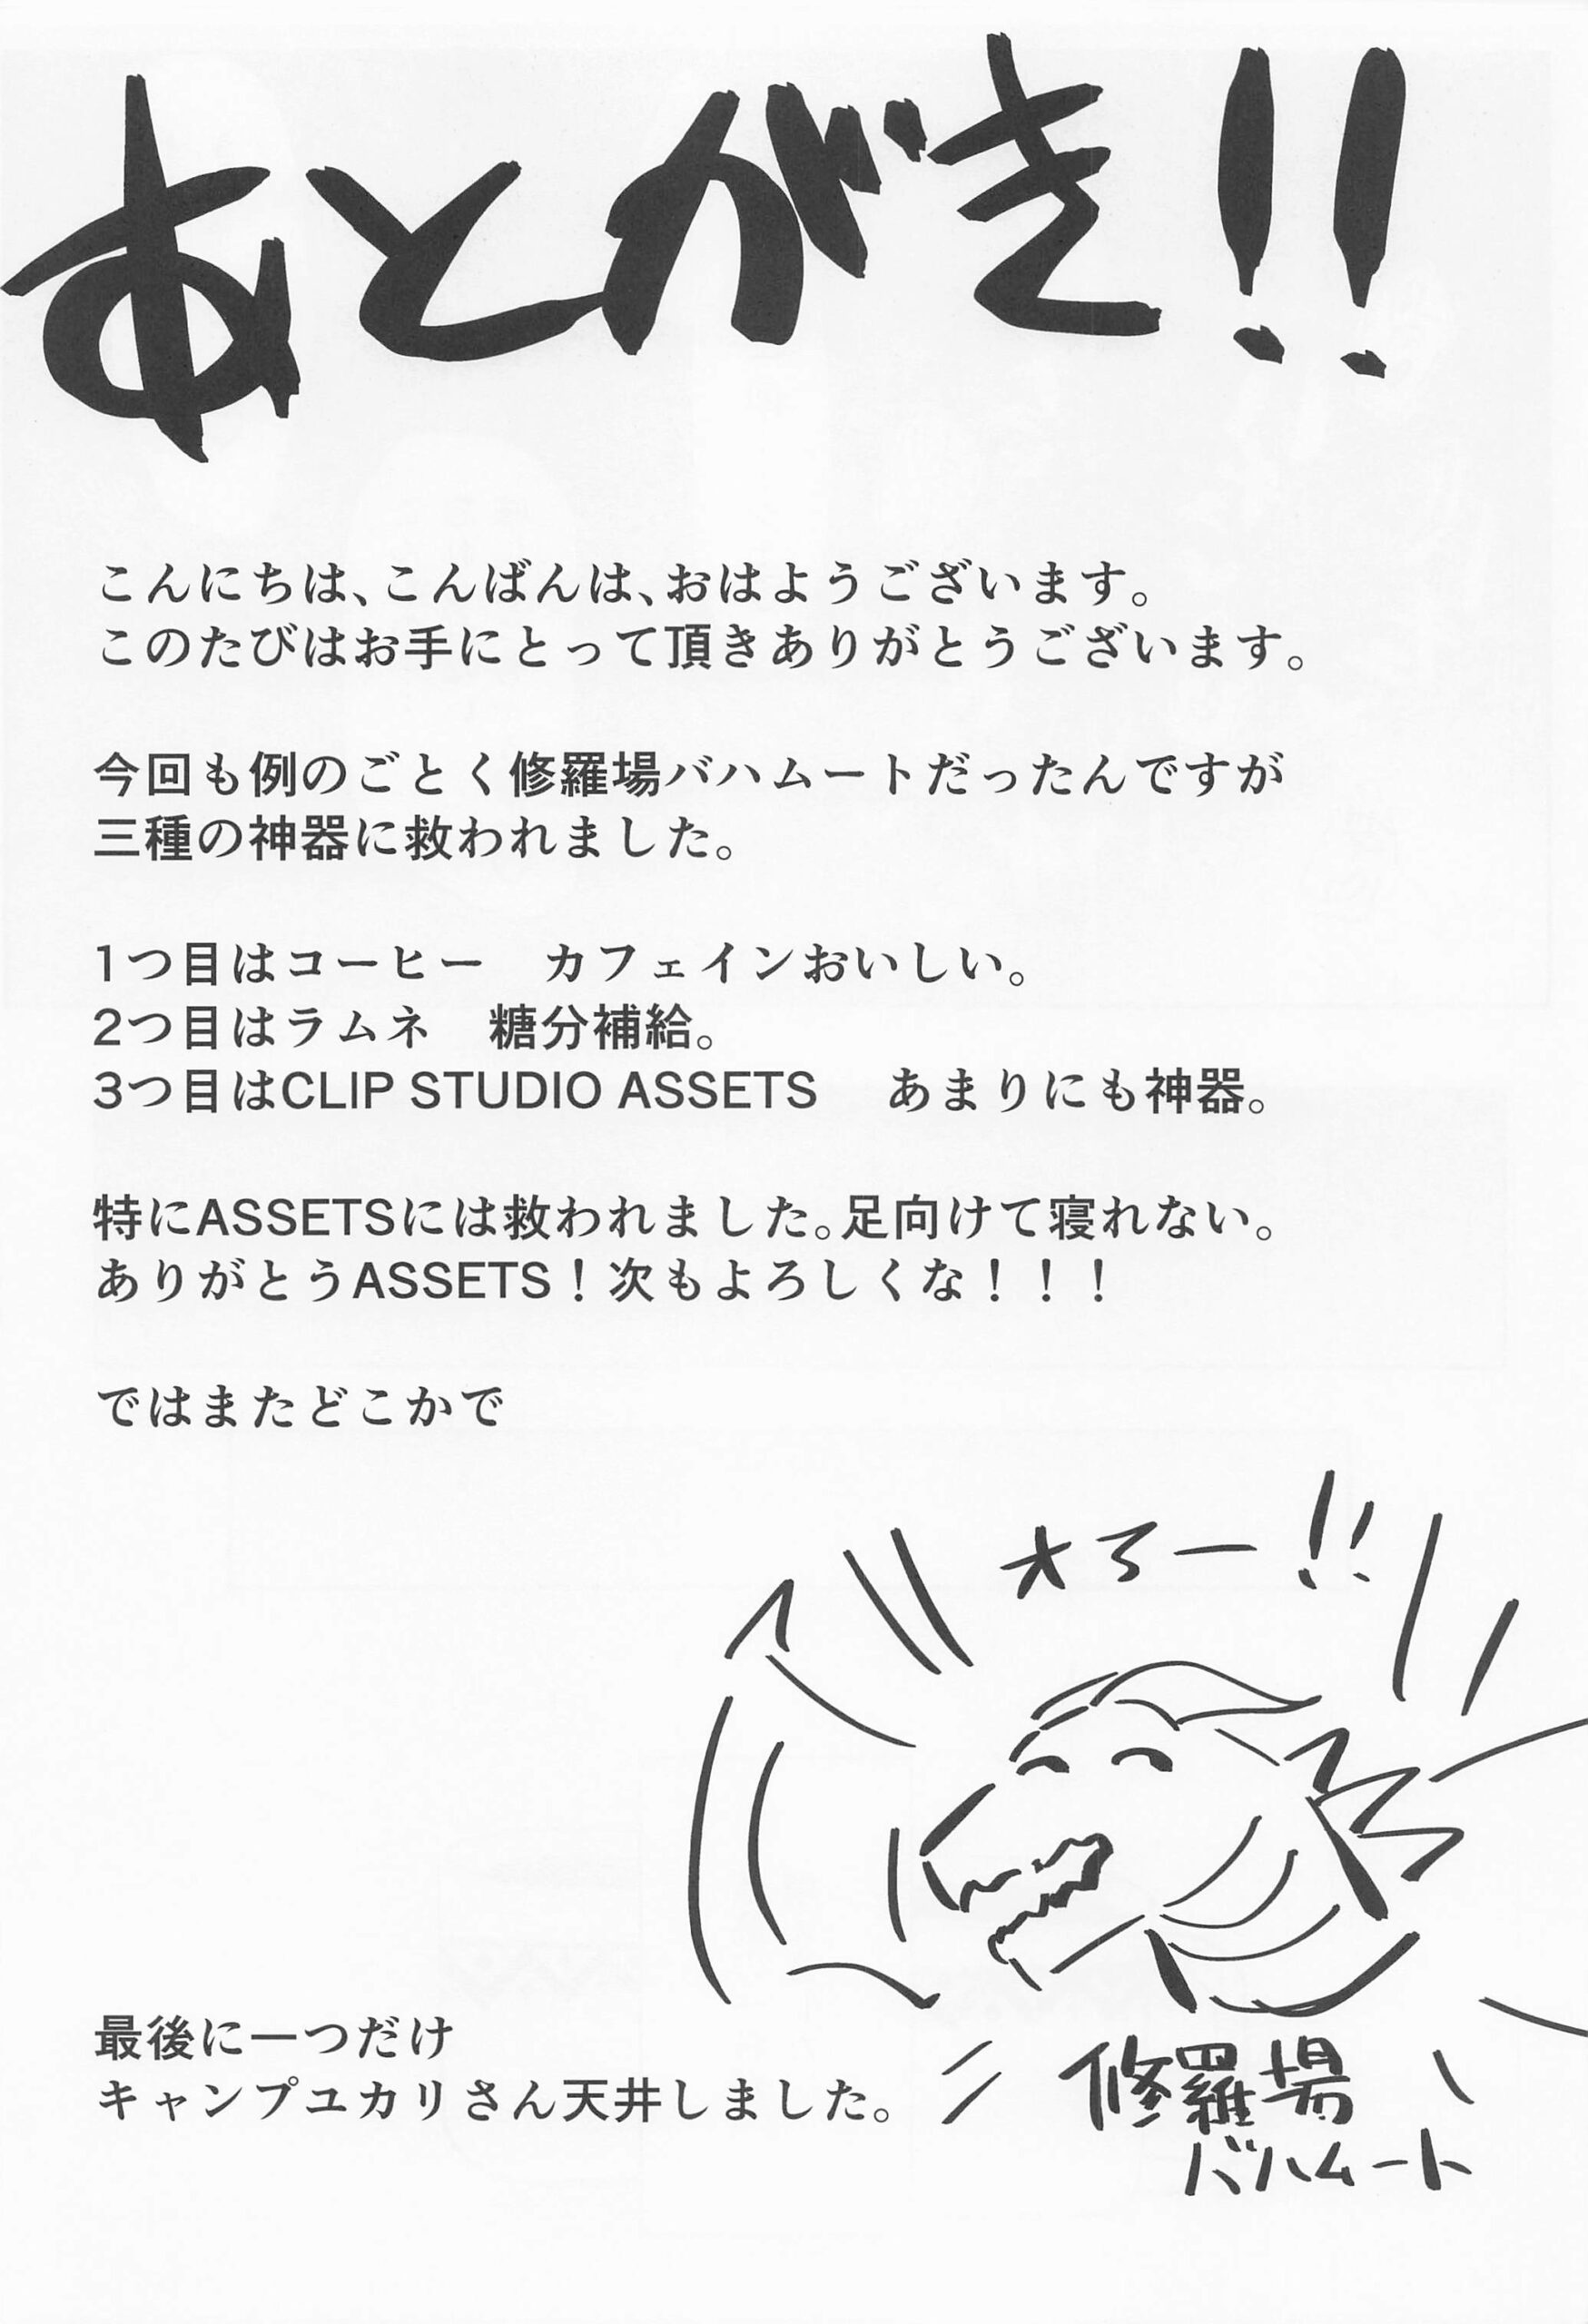 あとがき!!
こんにちは、こんばんは、おはようございます。
このたびはお手にとって頂きありがとうございます。
今回も例のごとく修羅場バハムートだったんですが
三種の神器に救われました。
1つ目はコーヒー　カフェインおいしい。
2つ目はラムネ　糖分補給。
3つ目はCLIP STUDIO ASSETS　あまりにも神器。
特にASSETSには救われました。足向けて寝れない。
ありがとうASSETS！次もよろしくな！！！
ではまたどこかで
オラー!!
最後に一つだけ
キャンプユカリさん天井しました。
修羅場
バハムート